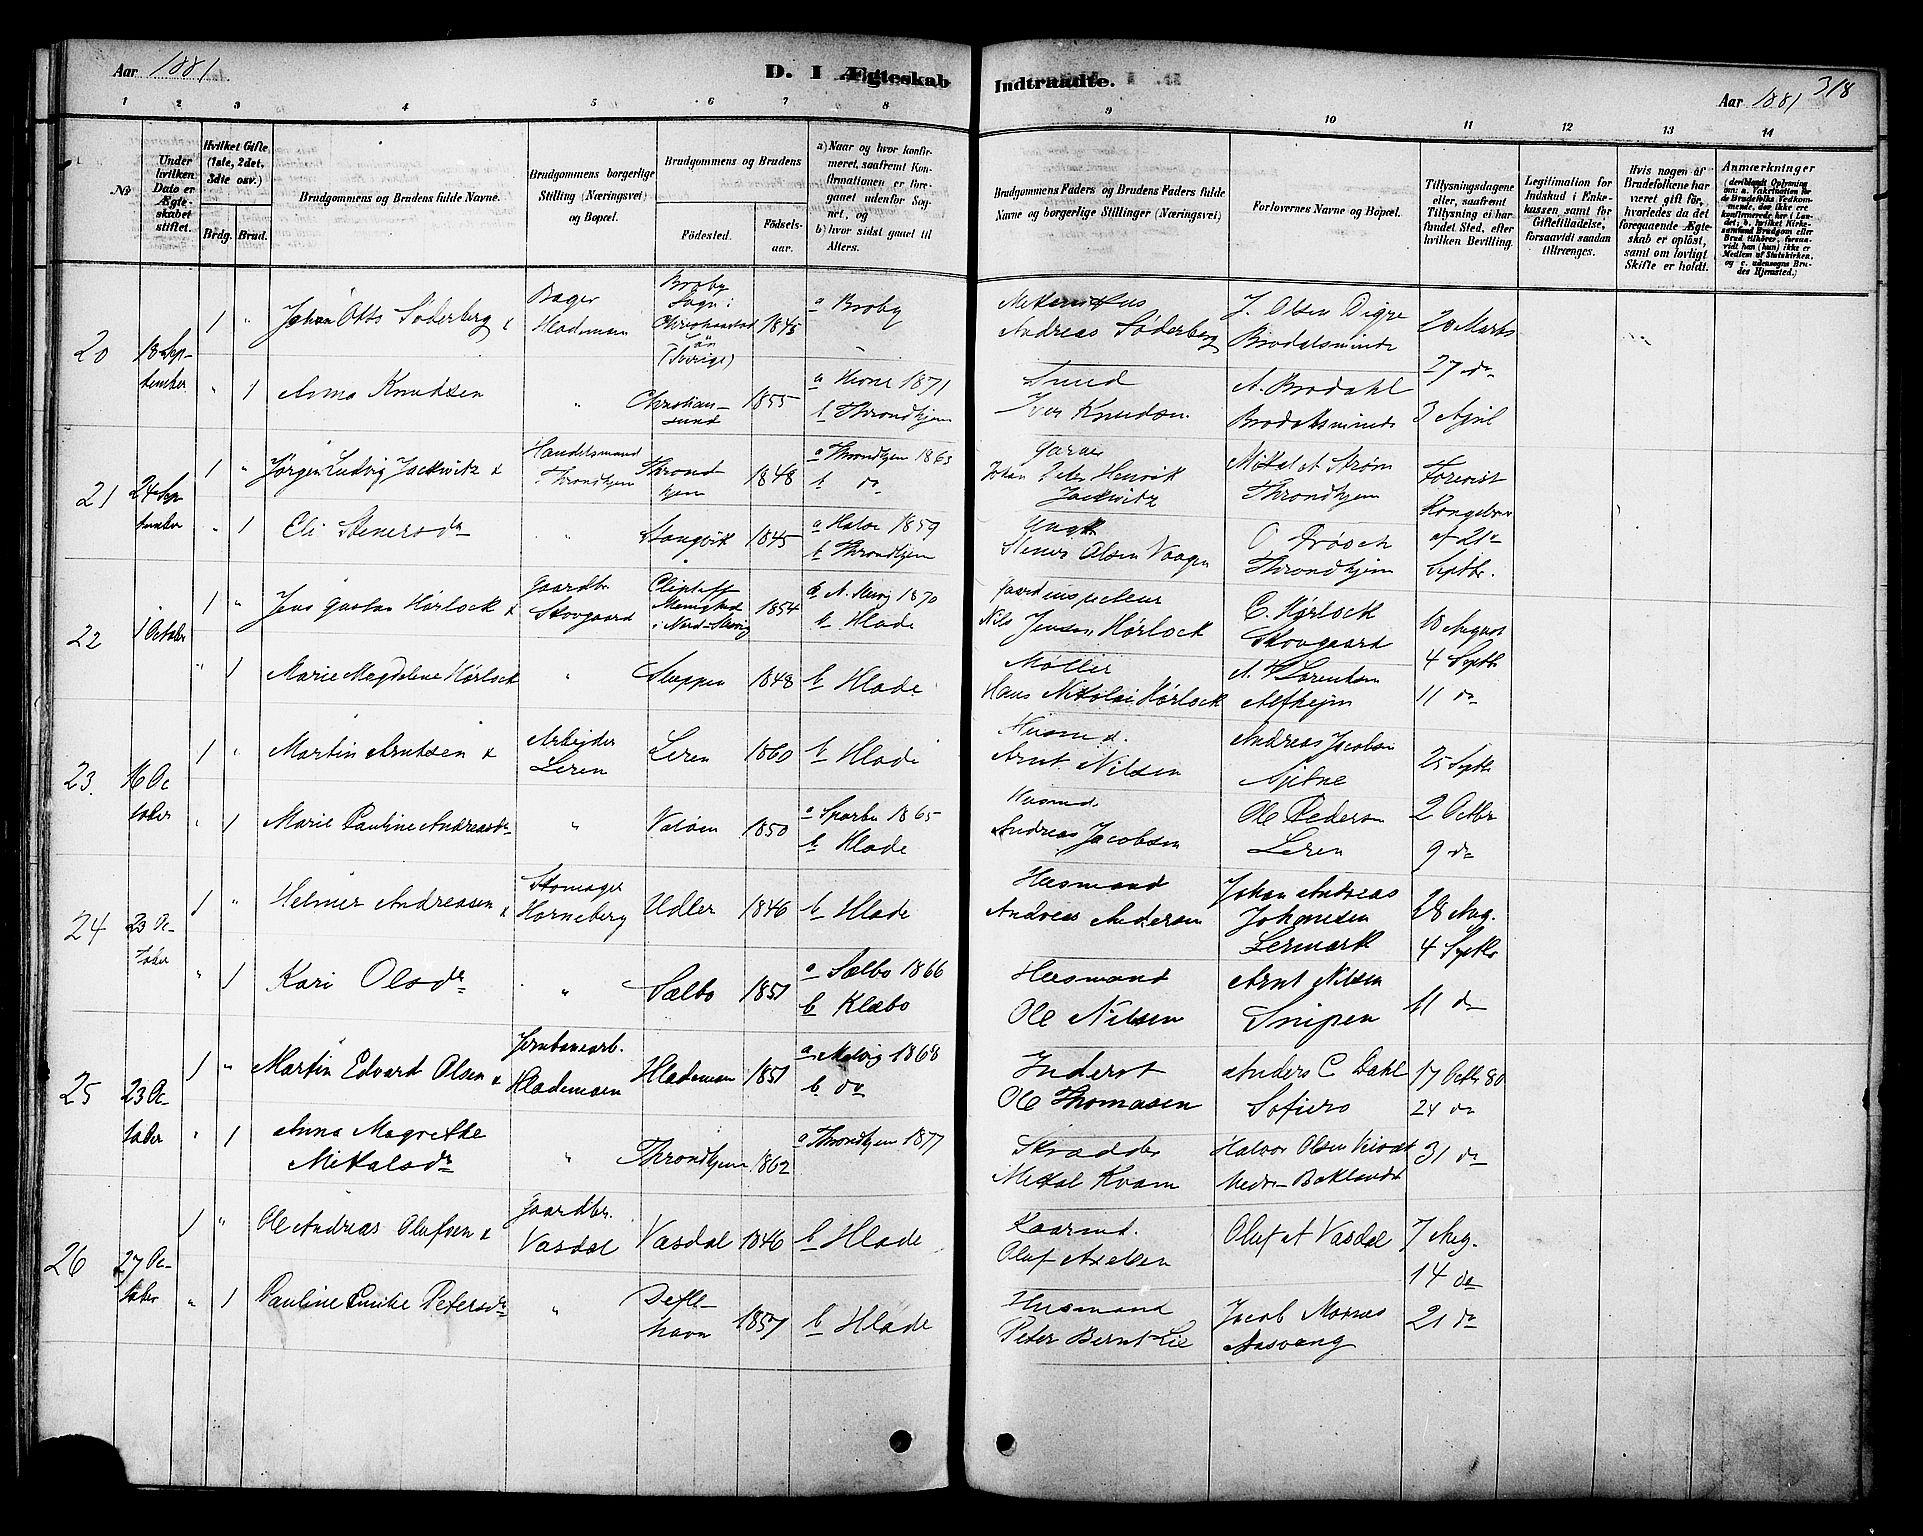 Aar 1881
D. I Ægteskab
Indtraadte.
Aar 1881
318
1 2 3 4 5 6 7 8
9 10 11 12 13 14
No
Under hvilken Dato er Ægteskabet stiftet.
Hvilket Gifte (1ste, 2det, 3die osv.)
Brdg. Brud.
Brudgommens og Brudens fulde Navne.
Brudgommens borgerlige Stilling (Næringsvei) og Bopæl.
Brudgommens og Brudens
Fødested.
Fødselsaar.
a) Naar og hvor konfirmeret, saafremt Konfirmationen er foregaaet udenfor Sognet, og
b) hvor sidst gaaet til Alters.
Brudgommens Faders og Brudens Faders fulde Navne og borgerlige Stillinger (Næringsvei)
Forlovernes Navne og Bopæl.
Tillysningsdagene eller, saafremt Tillysning ei har fundet Sted, efter hvilken Bevilling.
Legitimation for Indskud i Enkekassen samt for Giftetilladelse, forsaavidt saadan tiltrænges.
Hvis nogen af Brudefolkene har været gift før, hvorledes da det foregaaende Ægteskab er opløst, samt om lovligt Skifte er holdt.
Anmærkninger
20 18 September 1 " Johan Otto Söderberg & Bager Hlademoen Broby Sogn i Christianstad Län (Sverige) 1845 a Broby
Andreas Söderberg J. Olsen Digre Brodalsminde 20 Marts
" 1 Anna Knudsen " Christiansund 1855 a 1871 b Throndhjem
Smed Iver Knudsen A. Brodahl Brodalsminde 27 do 3 April
21 24 September 1 " Jörgen Ludvig Jackwitz & Handelsmand Throndhjem Throndhjem 1848 a Throndhjem 1863 b do
Garver Johan Peter Henrik Jackwitz Mikal A Strøm Throndhjem
" 1 Eli Stenersdr " Stangvik 1845 a Halse 1859 b Throndhjem
Stener Olsen Vaagen Throndhjem Kongebrev af 21 Septbr.
22 1 October 1 " Jens Gustav Hørlock & Gaardbr. Skovgaard i Nord-Slesvig 1854 a 1870 b Hlade
Nils Jensen Hørlock C. Hørlock Skovgaard 18 August
" 1 Marie Magdalene Hørlock " 1848 b Hlade
Møller Hans Nikolai Hørlock A. Lorentsen 4 Septbr 11 do
23. 16 October 1 " Martin Arntsen & Arbejder Leren Leren 1860 b Hlade
Husmd. Arnt Nilsen Andreas Jacobsen 25 Septbr
" 1 Marie Pauline Andreasdr " 1850 a Sparbu 1865 b Hlade
Husmd. Andreas Jacobsen Ole Pedersen Leren 2 Octbr 9 do
24 23 October 1 " Helmer Andreasen & Skomager Horneberg Udler 1846 b Hlade
Husmand Andreas Andersen Johan Andreas Johansen Lermark 28 Aug. 4 Septbr
" 1 Kari Olsdr " Sælbo 1851 a Sælbo 1866 b Klæbo
Husmand Ole Nilsen Arnt Nilsen Snipen 11 do
25 23 October 1 " Martin Edvard Olsen & Jernbanearb. Hlademoen Hlademoen 1851 a Malvig 1868 b do
Inderst Ole Thomasen Anders C Dahl Sofiero 17 Octbr 80 24 do
" 1 Anna Magrethe Mikalsdr " Throndhjem 1862 a Throndhjem 1877
Skrædder Mikal Kvam Halvor Olsen Nedre Baklandet 31 do
26 27 October 1 " Ole Andreas Olufsen & Gaardbr. Vasdal Vasdal 1846 b Hlade
Kaarmd. Oluf Axelsen Oluf A Vasdal 7 Aug. 14 do
" 1 Pauline Enike Petersdr " Deflehavn 1857 b Hlade
Husmand Peter Bernt Lie Jacob Moxnes Aasvang 21 do